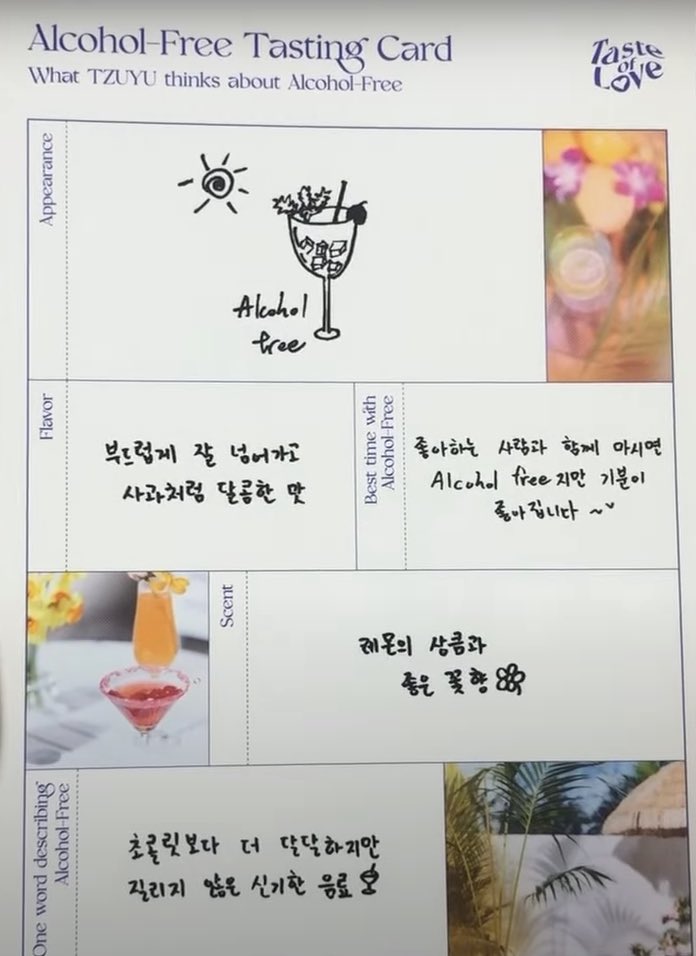 Alcohol-Free Tasting Card
What TZUYU thinks about Alcohol-Free
Taste
of
Love
Appearance
Alcohol
free
Flavor
부드럽게 잘 넘어가고
사과처럼 달콤한 맛
Best time with
Alcohol-Free
좋아하는 사람과 함께 마시면
Alcohol free지만 기분이
좋아집니다 ~
Scent
레몬의 상큼과
좋은 꽃향
One word describing
Alcohol-Free
초콜릿보다 더 달달하지만
질리지 않은 신기한 음료